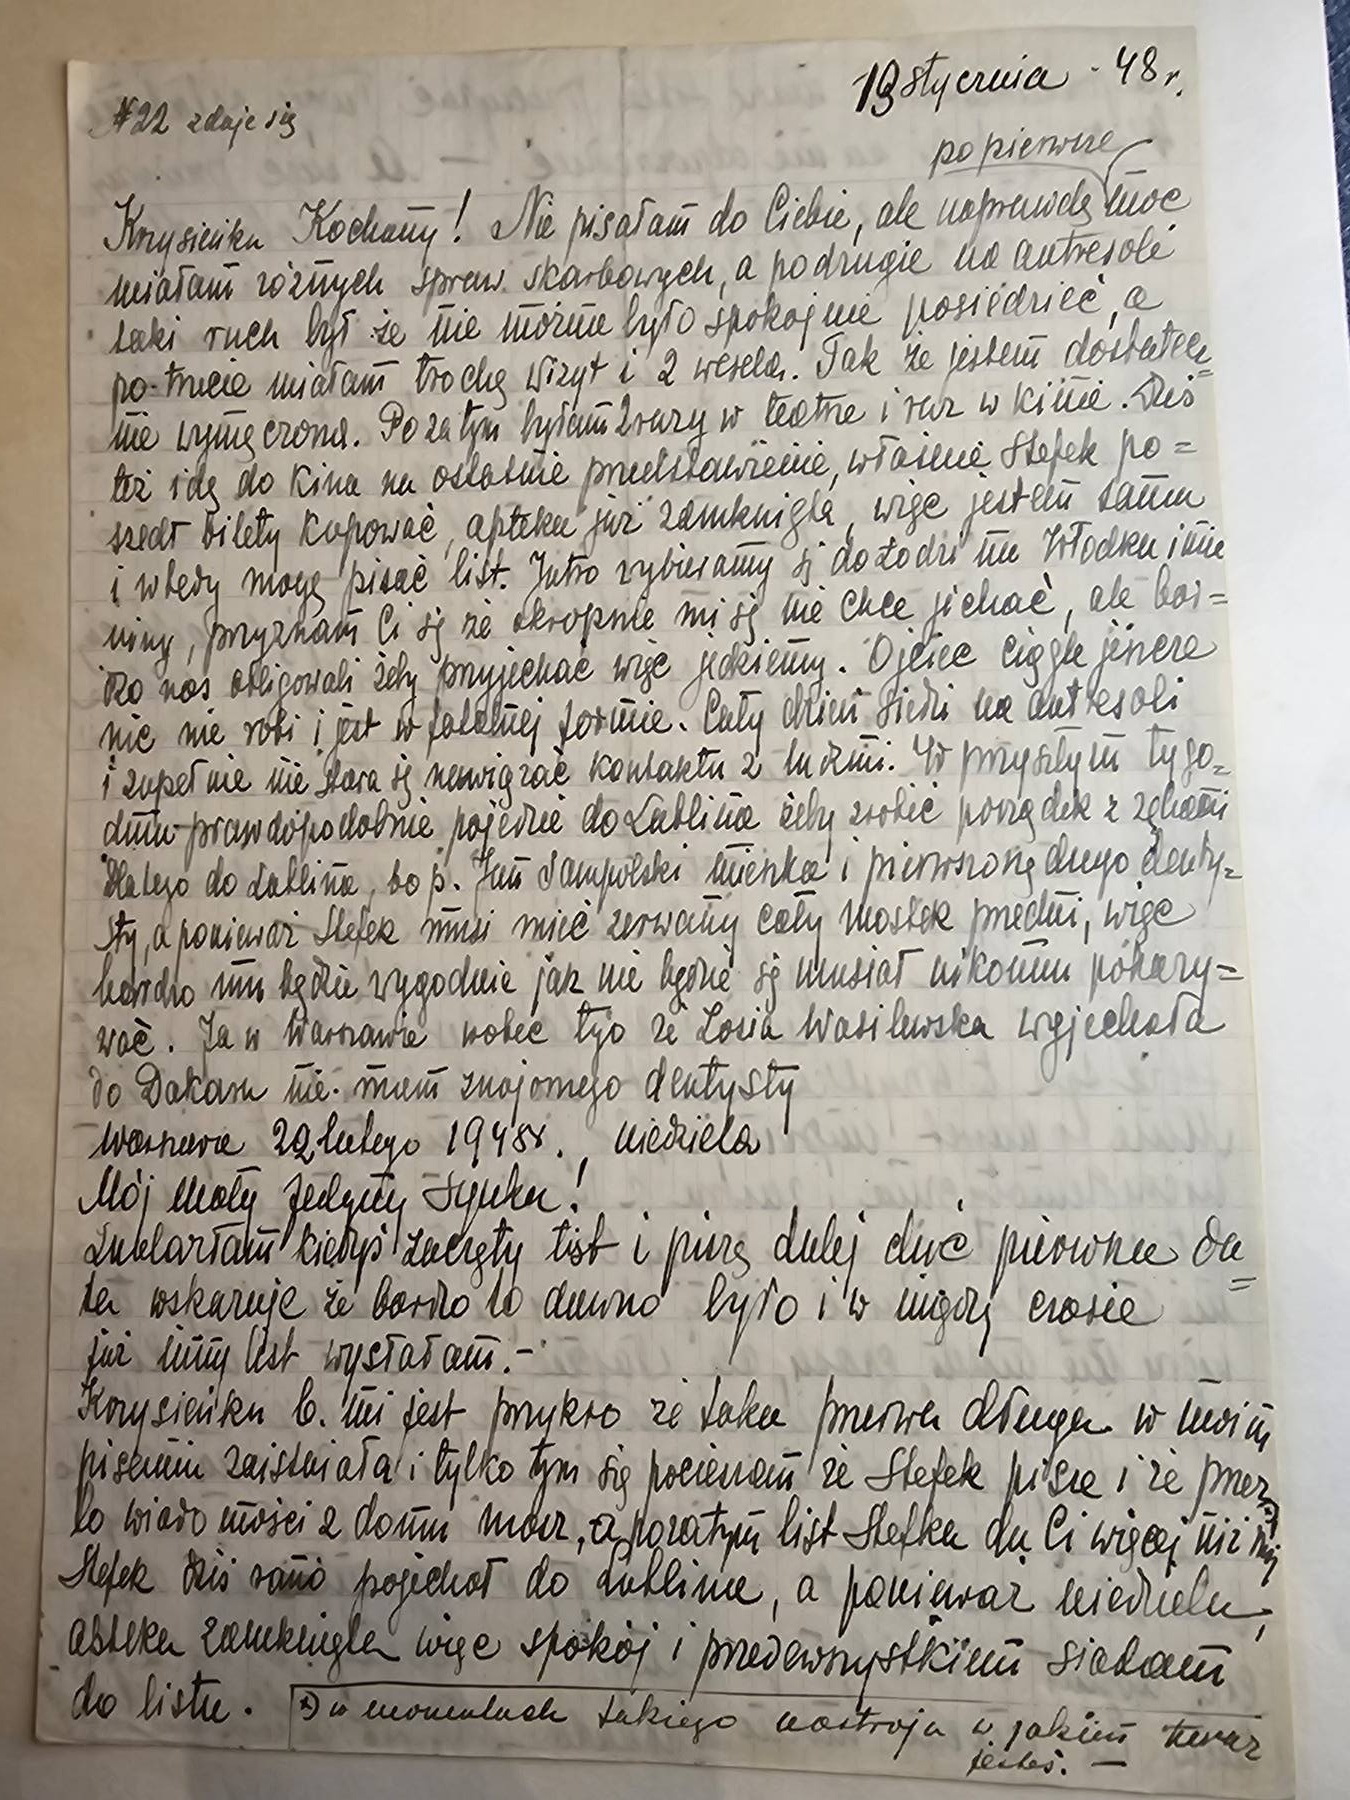 19 stycznia - 48 r.
№ 22 zdaje się
po pierwsze
Krzysieńku Kochany! Nie pisałam do Ciebie, ale naprawdę moc
miałam różnych spraw skarbowych, a podrugie na antresoli
taki ruch był że nie można było spokojnie posiedzieć, a
po-trzecie miałam trochę wizyt i 2 wesela. Tak że jestem dostatecz=
nie wymęczona. Poza tym byłam 2 razy w teatrze i raz w kinie. Dziś
też idę do kina na ostatnie przedstawienie, właśnie Stefek po=
szedł bilety kupować, apteka już zamknięta, więc jestem sama
i wtedy mogę pisać list. Jutro wybieramy się do Łodzi na Włodka imie
niny, przyznam Ci się że okropnie mi się nie chce jechać, ale bar=
dzo nas obligowali żeby przyjechać więc jedziemy. Ojciec ciągle jeszcze
nic nie robi i jest w fatalnej formie. Cały dzień siedzi na antresoli
i zupełnie nie stara się nawiązać kontaktu z ludźmi. W przyszłym tygo=
dniu prawdopodobnie pojedzie do Lublina żeby zrobić porządek z zębami
Dlatego do Lublina, bo p. Jun Sampolski mieszka i pierwszorzędnego denty=
sty, a ponieważ Stefek musi mieć zerwany cały mostek przedni, więc
bardzo mu będzie wygodnie jak nie będzie się musiał nikomu pokazy=
wać. Ja w Warszawie wobec tego że Zosia Wasilewska wyjechała
do Dakaru nie mam znajomego dentysty
Warszawa 22 lutego 1948 r., niedziela
Mój mały jedyny synku!
Znalazłam kiedyś zaczęty list i piszę dalej choć pierwsza da=
ta wskazuje że bardzo to dawno było i w między czasie
już inny list wysłałam.-
Krzysieńku b. mi jest przykro że taka przerwa długa w moim
pisaniu zaistniała i tylko tym się pocieszam że Stefek pisze i że przez
to wiadomości z domu masz, a pozatym list Stefka da Ci więcej niż mój
Stefek dziś rano pojechał do Lublina, a ponieważ niedziela,
apteka zamknięta więc spokój i przedewszystkiem siadam
do listu.
x) w momentach takiego nastroju w jakim teraz
jesteś. -